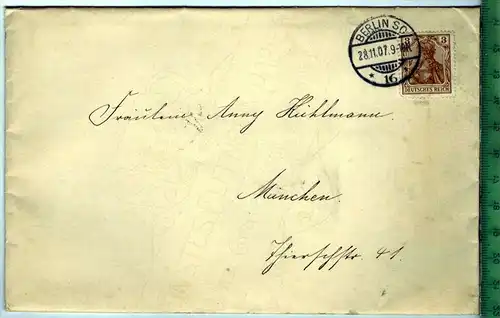 BERLIN SO
28.11.07. 9-10V.
* 16 *
3 3
DEUTSCHES REICH
Fräulein Anny Kühlmann.
München.
Thierschstr. 41.